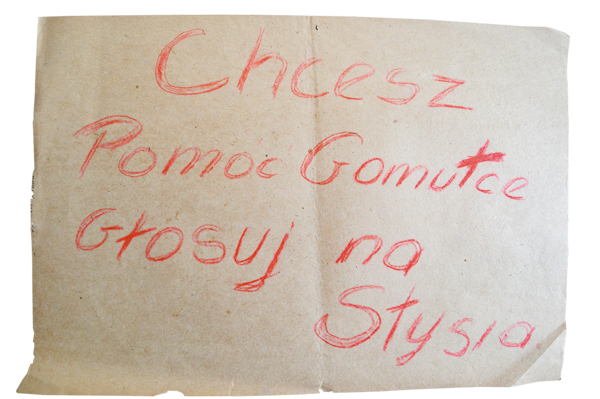 Chcesz
Pomoc Gomułce
Głosuj na
Stysia